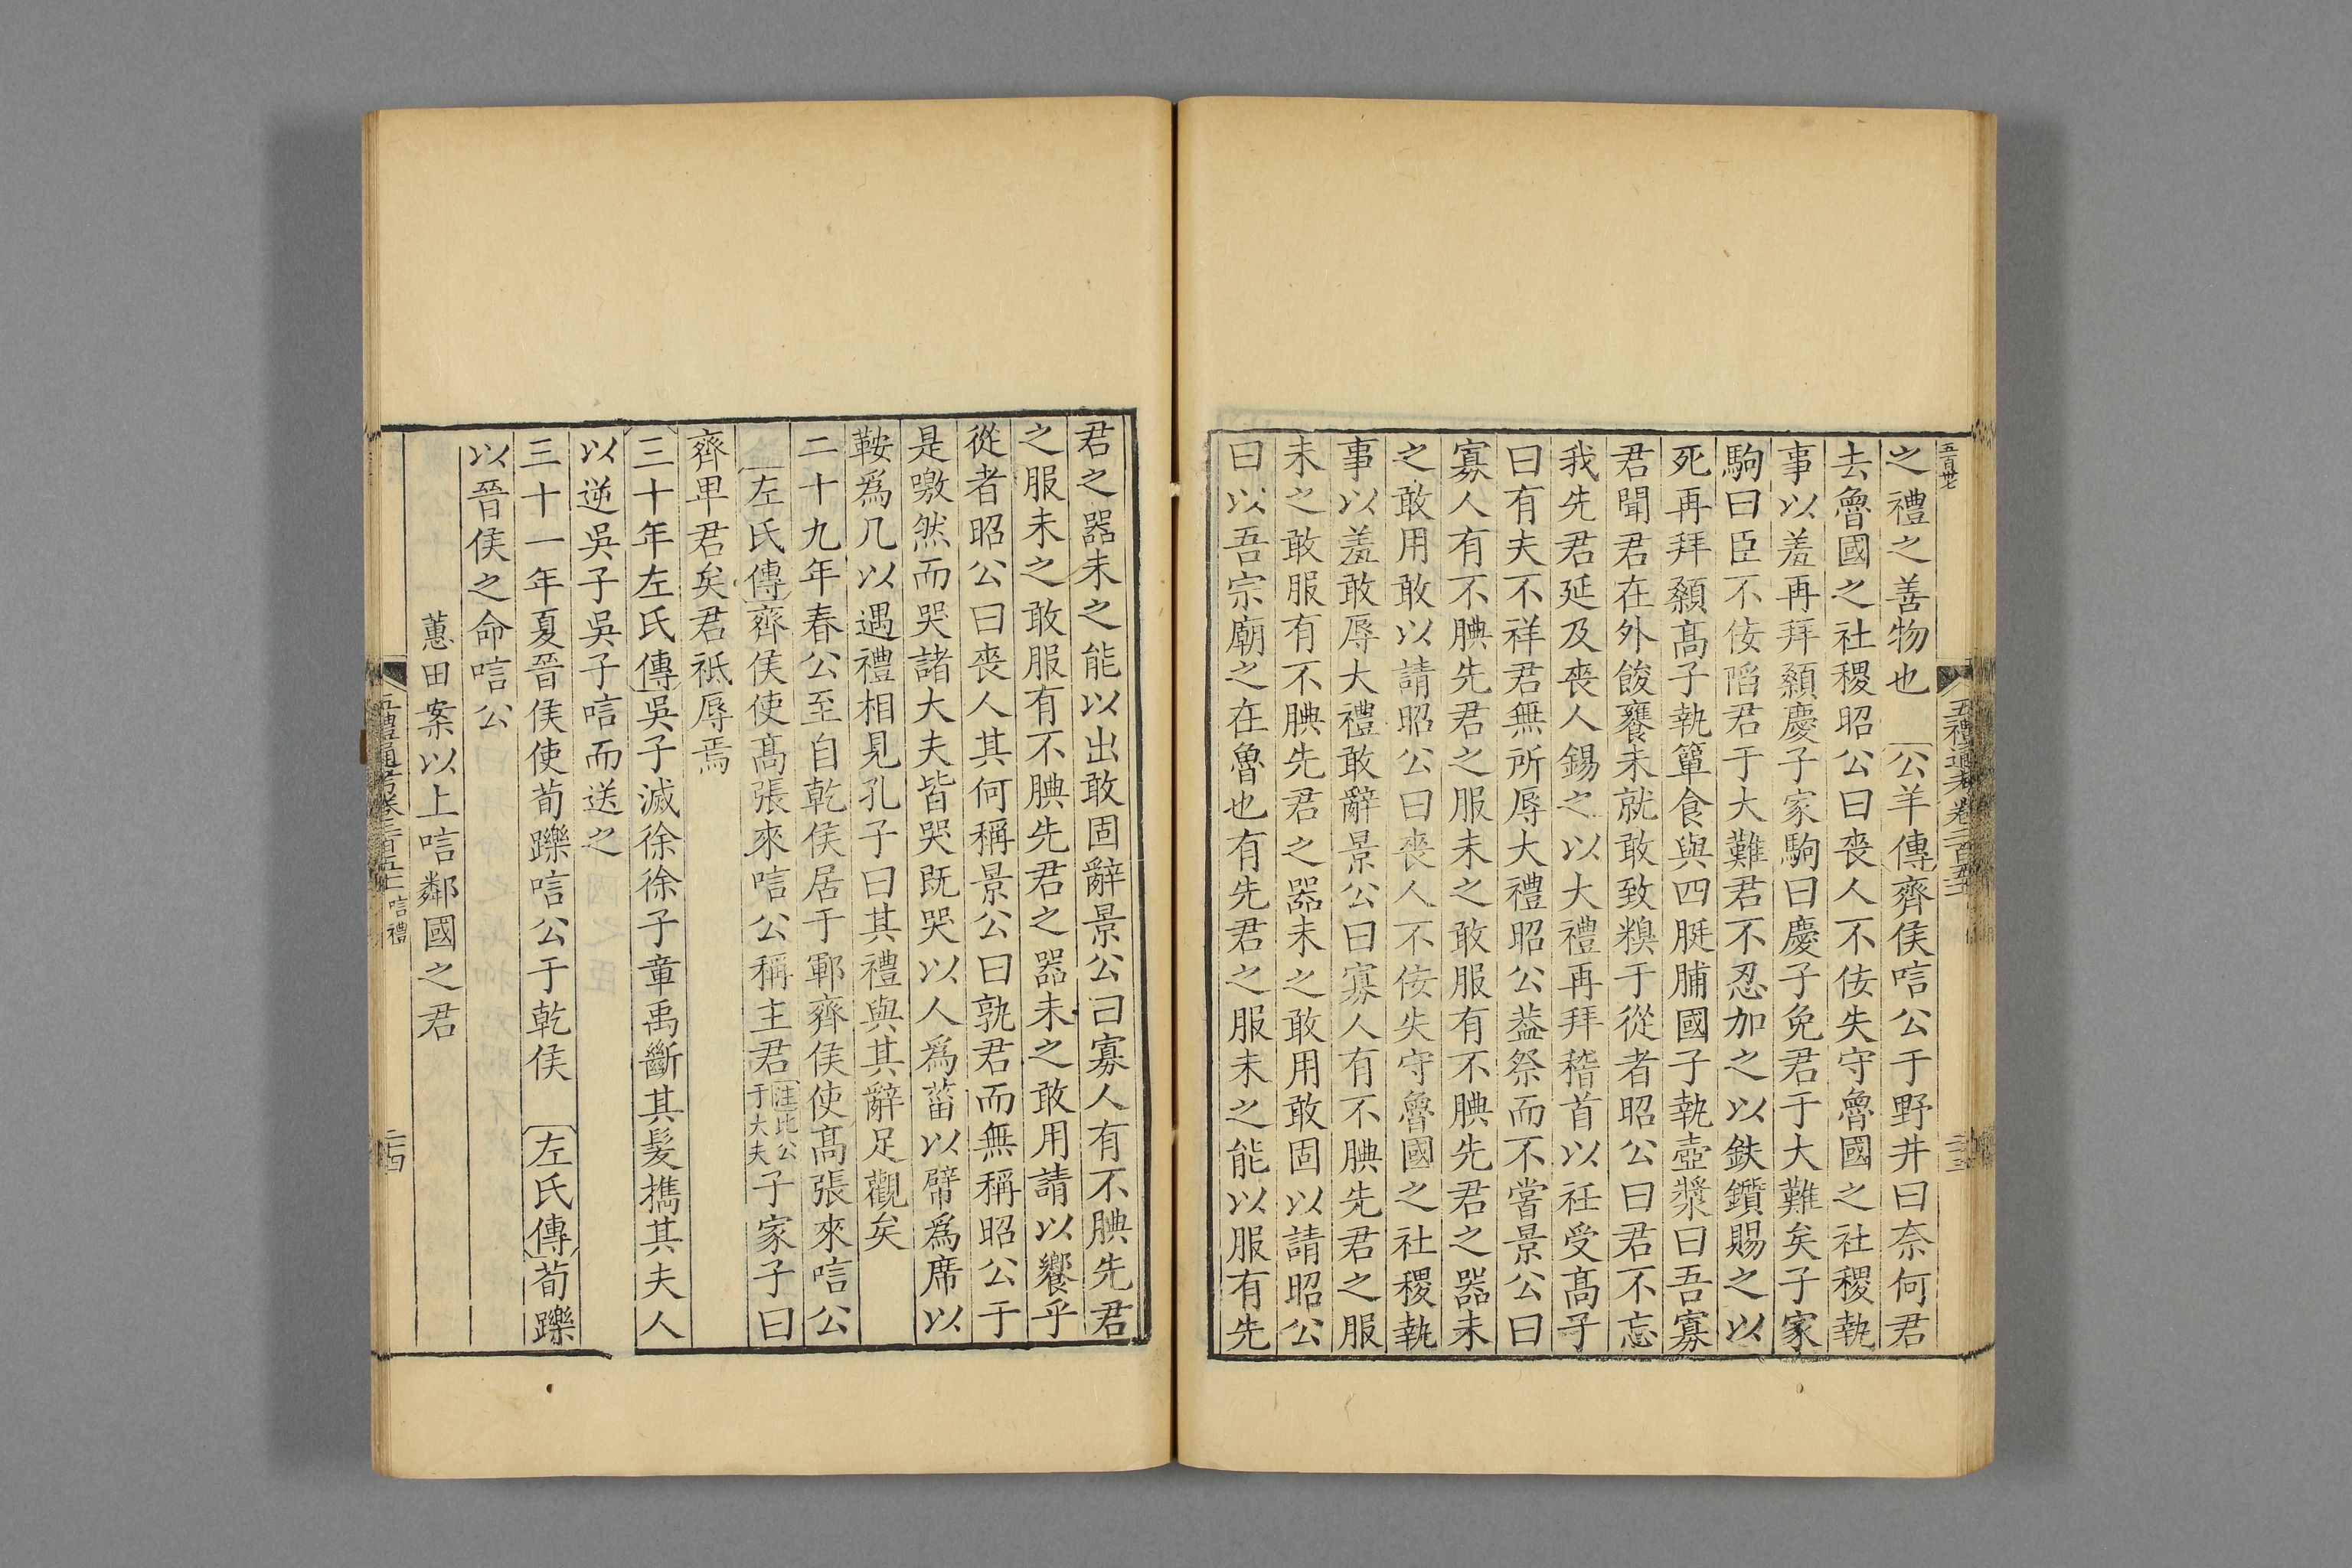 五百卅七
五禮通考卷二百五十二
二十三
之禮之善物也　公羊傳齊侯唁公于野井曰奈何君
去魯國之社稷昭公曰喪人不佞失守魯國之社稷執
事以羞再拜顙慶子家駒曰慶子免君于大難矣子家
駒曰臣不佞䧟君于大難君不忍加之以鈇鑕賜之以
死再拜顙髙子執簞食與四脡脯國子執壺漿曰吾寡
君聞君在外餕饔未就敢致糗于從者昭公曰君不忘
我先君延及喪人錫之以大禮再拜稽首以衽受髙子
曰有夫不祥君無所辱大禮昭公葢祭而不嘗景公曰
寡人有不腆先君之服未之敢服有不腆先君之器未
之敢用敢以請昭公曰喪人不佞失守魯國之社稷執
事以羞敢辱大禮敢辭景公曰寡人有不腆先君之服
未之敢服有不腆先君之器未之敢用敢固以請昭公
曰以吾宗廟之在魯也有先君之服未之能以服有先
君之器未之能以出敢固辭景公曰寡人有不腆先君
之服未之敢服有不腆先君之器未之敢用請以饗乎
從者昭公曰喪人其何稱景公曰孰君而無稱昭公于
是噭然而哭諸大夫皆哭既哭以人爲菑以幦爲席以
鞍爲几以遇禮相見孔子曰其禮與其辭足觀矣
二十九年春公至自乾侯居于鄆齊侯使髙張來唁公
左氏傳齊侯使髙張來唁公稱主君注比公于大夫子家子曰
齊卑君矣君祗辱焉
三十年左氏傳吳子滅徐徐子章禹斷其髮攜其夫人
以逆吳子吳子唁而送之
三十一年夏晉侯使荀躒唁公于乾侯　左氏傳荀躒
以晉侯之命唁公
蕙田案以上唁鄰國之君
五禮通考卷二百五十二　唁禮
二十四